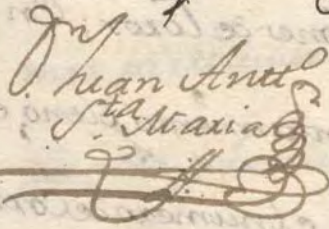 Juan Antto
Sta Maria